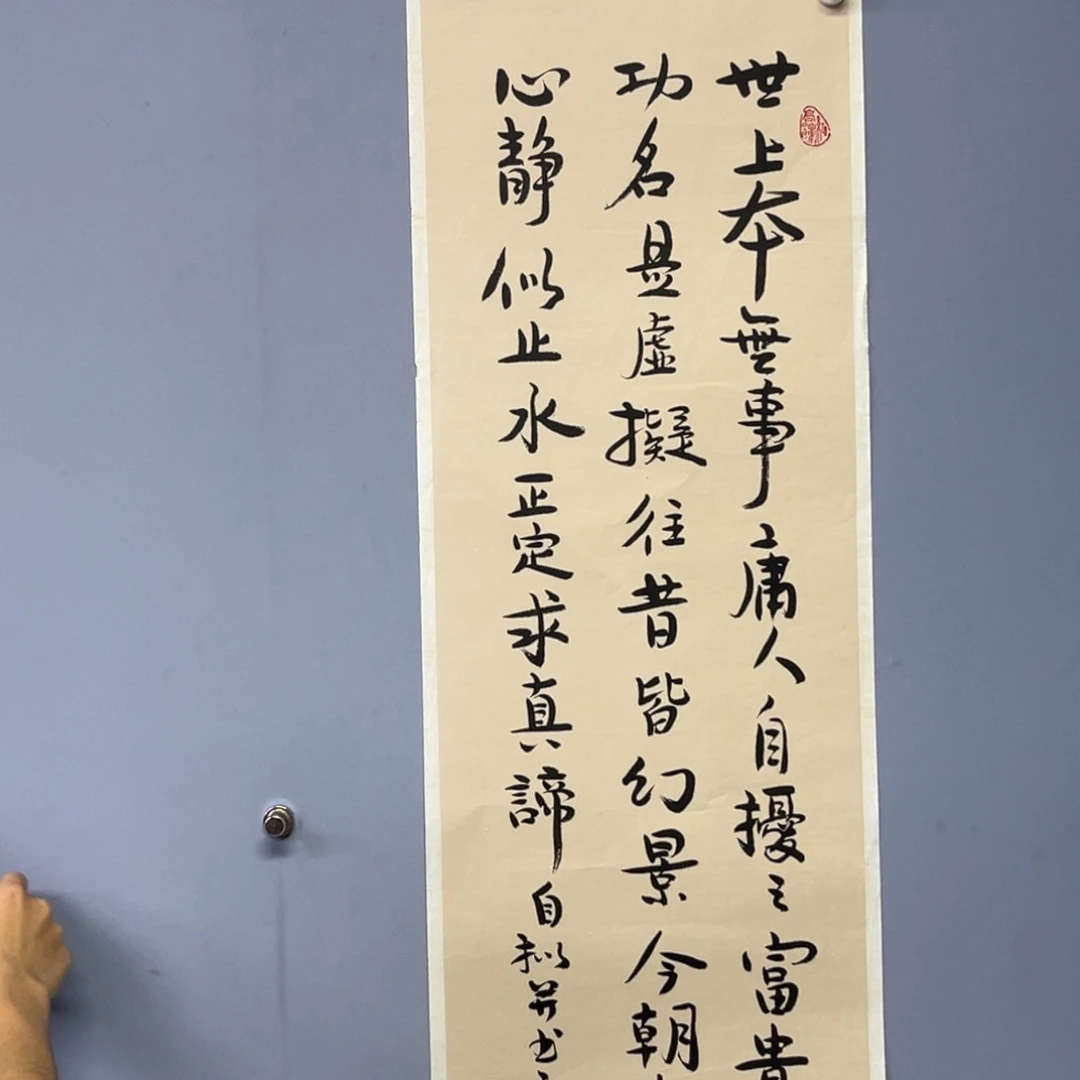 世上本無事庸人自擾之富貴
功名是虛擬往昔皆幻景今朝
心静似止水正定求真諦自拟并书